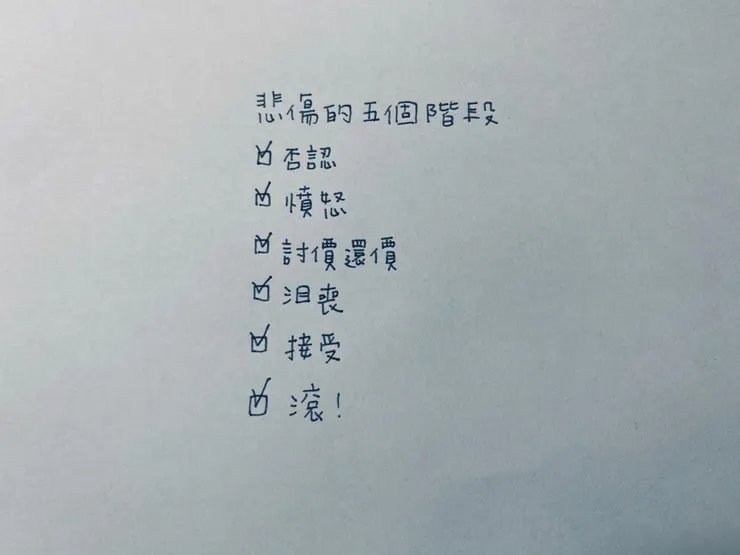 悲傷的五個階段
☑ 否認
☑ 憤怒
☑ 討價還價
☑ 沮喪
☑ 接受
☑ 滾！